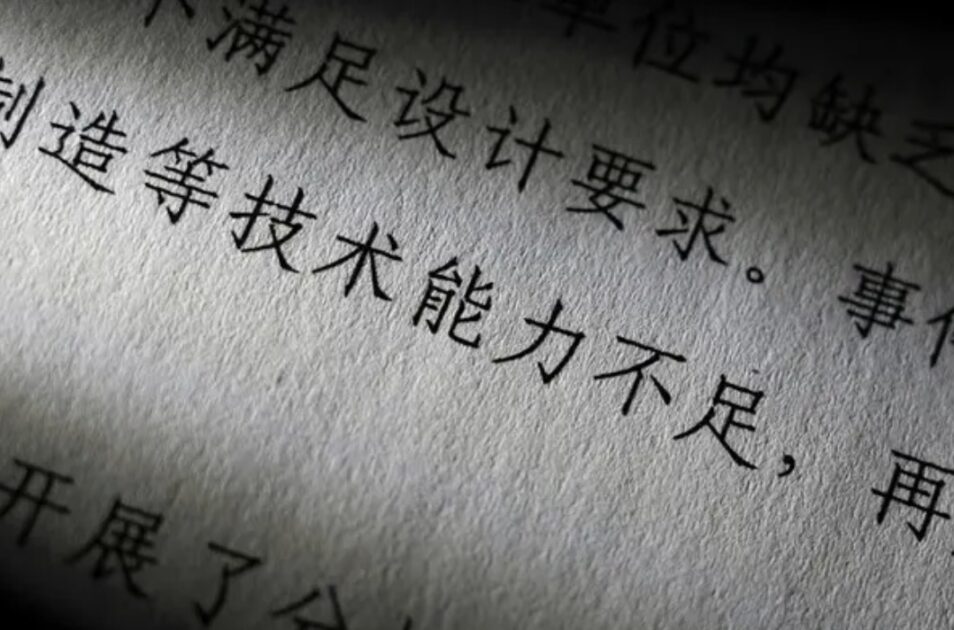 单位均缺乏
不满足设计要求。事
制造等技术能力不足，再
开展了分